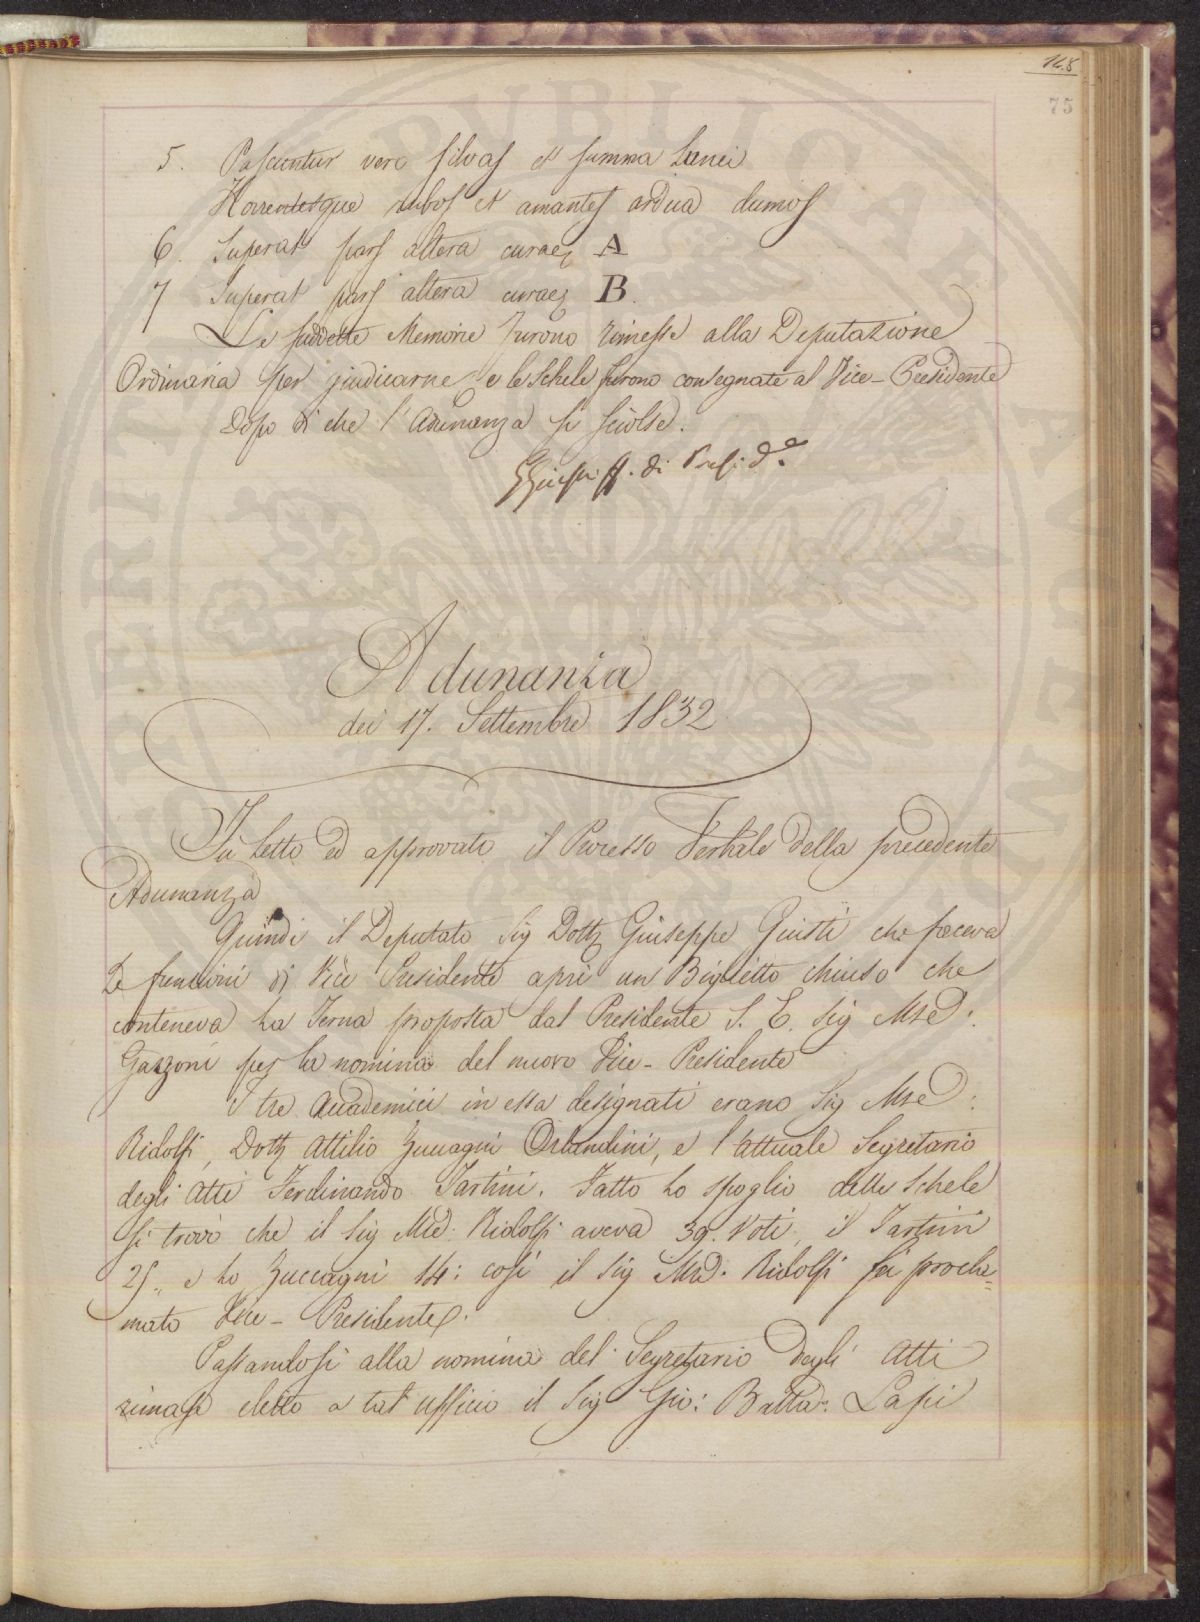 148
75
5. Pascuntur vero silvas et summa Lunei
Horrentesque rubos et amantes ardua dumos
6. Superat pars altera curae A
7 Superat pars altera curae B.
Le suddette Memorie furono rimesse alla Deputazione
Ordinaria per giudicarne e le Schele furono consegnate al Vice-Presidente
Dopo di che l'Adunanza si sciolse.
GGiusti ff. di Presid.e
Adunanza
dei 17. Settembre 1832
Fù letto ed approvato il Processo Verbale della precedente
Adunanza
Quindi il Deputato Sig Dott. Giuseppe Giusti che faceva
Le funzioni di Vice Presidente aprì un Biglietto chiuso che
conteneva La Terna proposta dal Presidente S. E. Sig Mse:
Gazzoni per la nomina del nuovo Vice-Presidente
I tre Accademici in essa designati erano Sig Mse:
Ridolfi, Dott. Attilio Zuccagni Orlandini, e l'attuale Segretario
degli Atti Ferdinando Tartini. Fatto Lo spoglio delle Schele
si trovò che il Sig Mse: Ridolfi aveva 39. Voti, il Tartini
25., e Lo Zuccagni 14: così il Sig Mse. Ridolfi fù procla=
mato Vice-Presidente.
Passandosi alla nomina del Segretario degli Atti
rimase eletto a tal ufficio il Sig Gio: Batta: Lapi
PVBLICAE